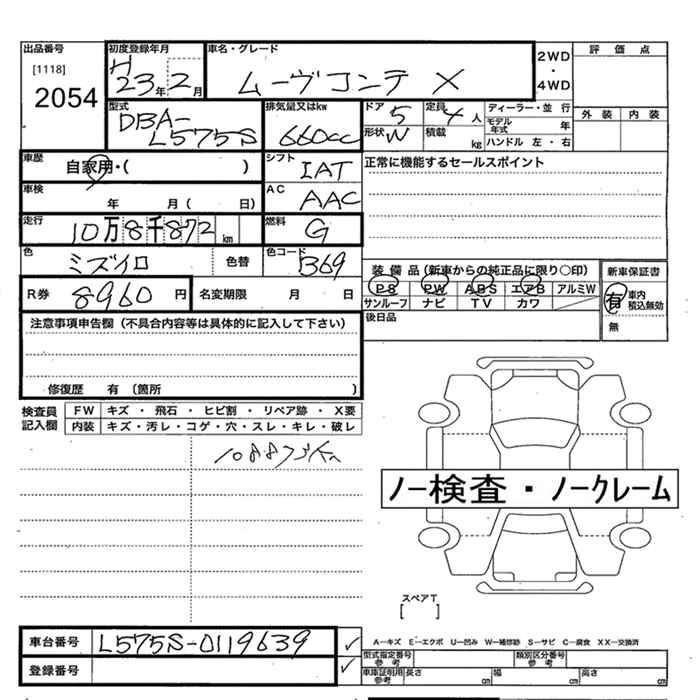 出品番号
[1118]
2054
初度登録年月
H
23年2月
車名・グレード
ムーヴコンテ X
2WD
・
4WD
評価点
外装 内装
型式
DBA-
L575S
排気量又はkw
660cc
ドア 5
定員 4人
形状 W
積載 kg
ディーラー・並行
モデル年式 年
ハンドル 左・右
車歴
自家用・( )
車検
年 月 ( 日)
シフト
IAT
AC
AAC
正常に機能するセールスポイント
走行
10万8千872km
燃料
G
色
ミズイロ
色替
色コード
B69
R券 8960円
名変期限 月 日
装備品(新車からの純正品に限り○印)
PS PW ABS エアB アルミW
サンルーフ ナビ TV カワ
新車保証書
有 車内積込無効
無
後日品
注意事項申告欄(不具合内容等は具体的に記入して下さい)
修復歴 有 (箇所 )
検査員記入欄
FW キズ・飛石・ヒビ割・リペア跡・X要
内装 キズ・汚レ・コゲ・穴・スレ・キレ・破レ
ノー検査・ノークレーム
スペアT
[ ]
車台番号 L575S-0119639
登録番号
A―キズ E―エクボ U―凹み W―補修跡 S―サビ C―腐食 XX―交換済
型式指定番号 参考
類別区分番号 参考
車庫証明用 参考
長さ cm 幅 cm 高さ cm